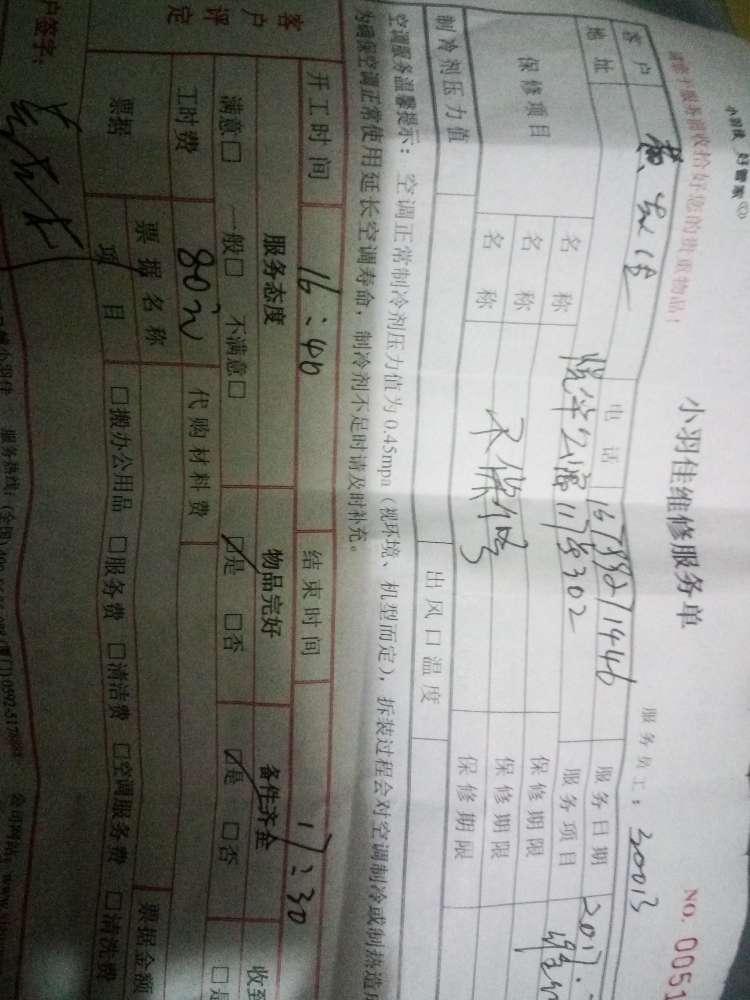 小羽佳 好管家
请您于服务前收拾好您的贵重物品！
小羽佳维修服务单
NO. 0051
服务员工：30013
客户 电话 服务日期 2017.
地址 悦华公寓 302 服务项目
保修项目 名称 保修期限
名称 不保修 保修期限
名称 保修期限
制冷剂压力值 出风口温度
空调服务温馨提示：空调正常制冷剂压力值为0.45mpa（视环境、机型而定），拆装过程会对空调制冷或制热造成
为确保空调正常使用延长空调寿命，制冷剂不足时请及时补充。
开工时间 16:40 结束时间 17:30
客户评定 服务态度 物品完好 备件齐全 收到
满意□ 一般□ 不满意□ ☑是 □否 ☑是 □否
工时费 80元 代购材料费
票据 票据名称 票据金额
项目 □搬办公用品 □服务费 □清洁费 □空调服务费 □清洗费
户签字：
小羽佳 服务热线：(全国)400 (厦门)0592-5178 公司网站：www.